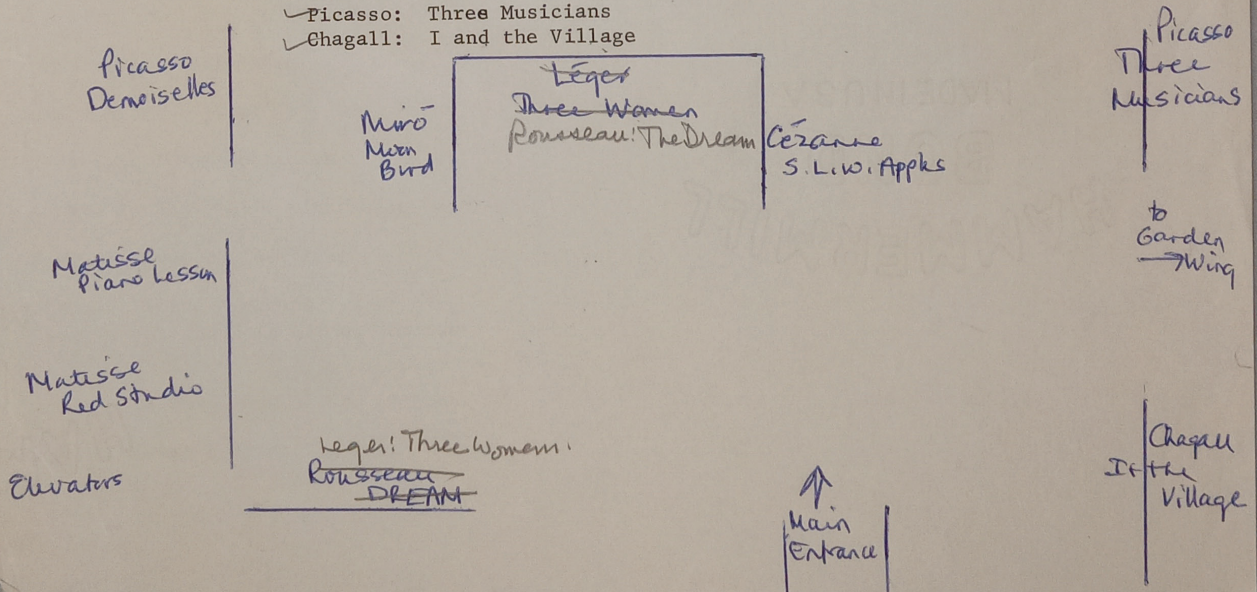 Picasso: Three Musicians
Chagall: I and the Village
Picasso
Demoiselles
Picasso
Three
Musicians
Léger
Three Women
Rousseau: The Dream
Miró
Moon
Bird
Cézanne
S.L.W. Apples
to
Garden
→ Wing
Matisse
Piano Lesson
Matisse
Red Studio
Elevators
Leger: Three Women.
Rousseau
DREAM
Main
Entrance
Chagall
I + the
Village